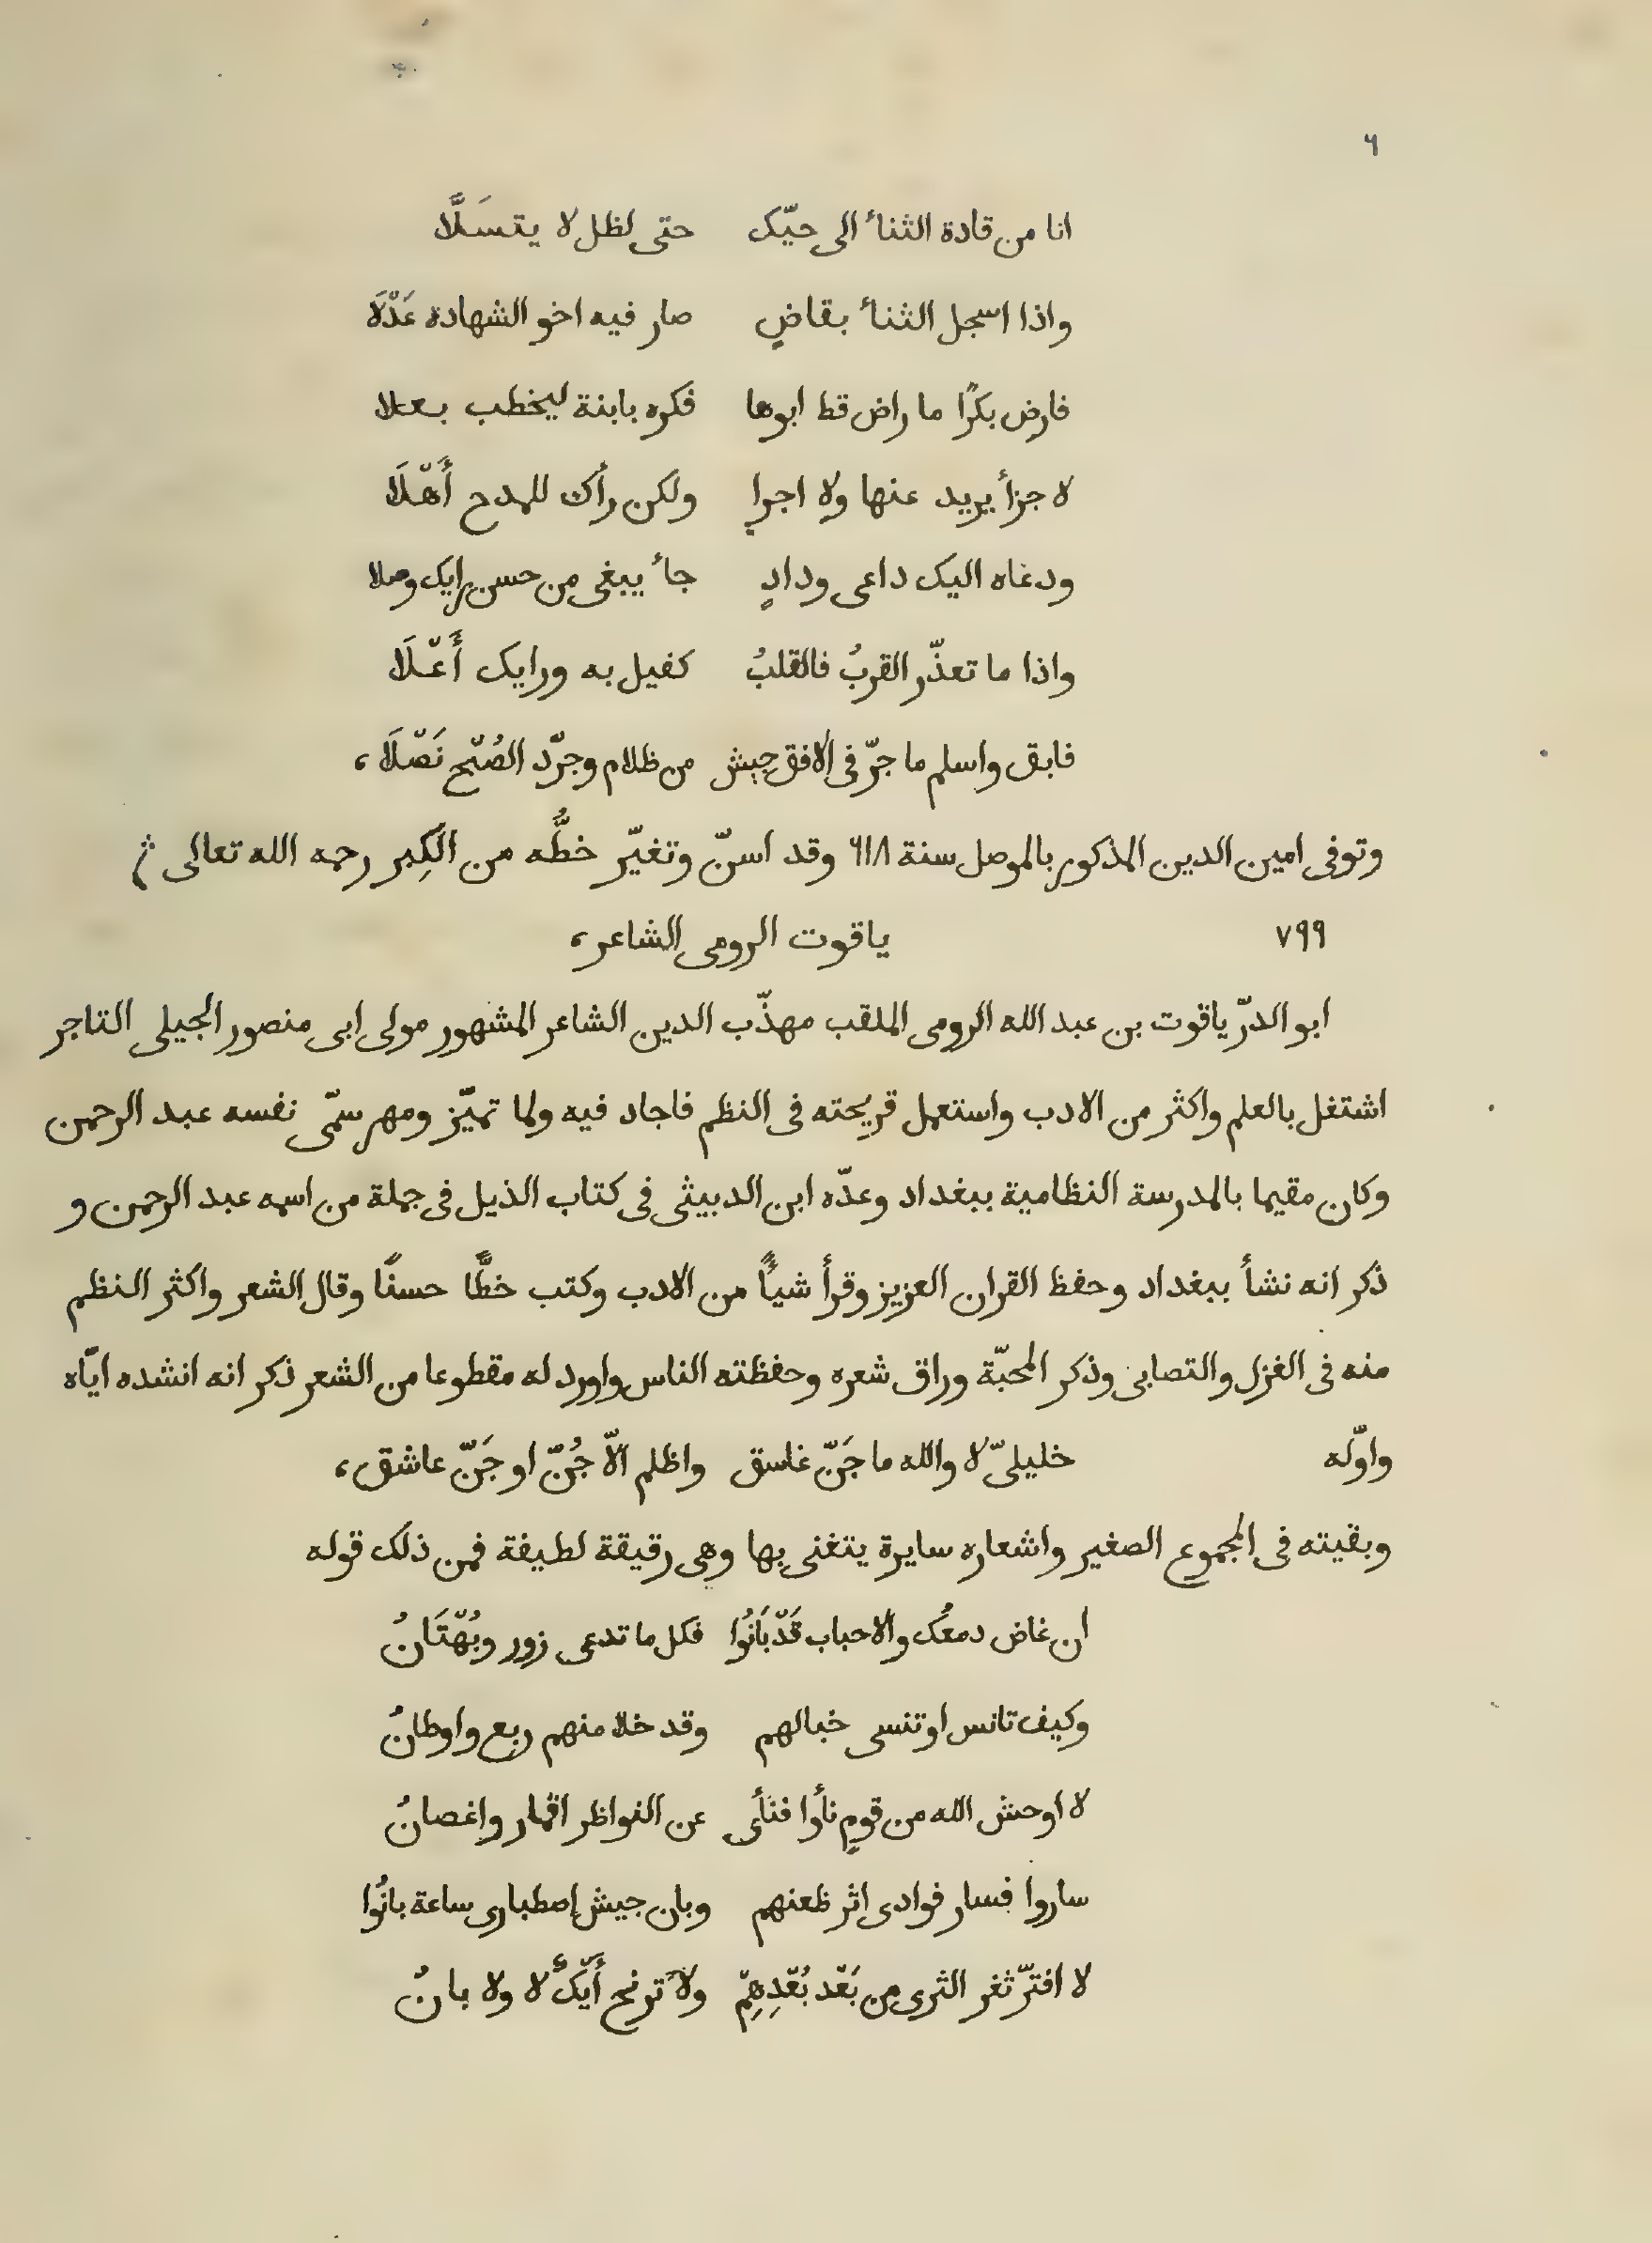 ٦
انا من قادة الثناءُ الى حيّك حتى لظل لا يتسَلَّا
واذا اسجل الثناءُ بقاضٍ صار فيه اخو الشهادة عَدْلَا
فارض بكرًا ما راض قط ابوها فكره بابنة ليخطب بعلا
لا جزأ يريد عنها ولا اجرا ولكن رأك للمدح أَهْلَا
ودعاه اليك داعى ودادٍ جاءُ يبغى من حسن رايك وصلا
واذا ما تعذّر القربُ فالقلبُ كفيل به ورايك أَعْلَا
فابق واسلم ما جرّ فى الافق جيش من ظلام وجرّد الصُبْح نَصْلَا،
وتوفى امين الدين المذكور بالموصل سنة ٦١٨ وقد اسنّ وتغيّر خطُّه من الكِبر رحمه الله تعالى
٧٩٩ ياقوت الرومى الشاعر،
ابو الدرّ ياقوت بن عبد الله الرومى الملقب مهذّب الدين الشاعر المشهور مولى ابى منصور الجيلى التاجر
اشتغل بالعلم واكثر من الادب واستعمل قريحته فى النظم فاجاد فيه ولما تميّز ومهر سمّى نفسه عبد الرحمن
وكان مقيما بالمدرسة النظامية ببغداد وعدّه ابن الدبيثى فى كتاب الذيل فى جملة من اسمه عبد الرحمن و
ذكر انه نشأ ببغداد وحفظ القران العزيز وقرأ شيأً من الادب وكتب خطًّا حسنًا وقال الشعر واكثر النظم
منه فى الغزل والتصابى وذكر المحبّة وراق شعره وحفظته الناس واورد له مقطوعا من الشعر ذكر انه انشده ايّاه
واوّله خليلىّ لا والله ما جَنّ غاسق واظلم الّا جُنّ او جَنّ عاشق،
وبقيته فى المجموع الصغير واشعاره سايرة يتغنى بها وهى رقيقة لطيفة فمن ذلك قوله
ان غاض دمعُك والاحباب قَدْ بَانُوا فكل ما تدعى زور وبُهْتَانُ
وكيف تانس او تنسى خيالهم وقد خلا منهم ربع واوطانُ
لا اوحش الله من قومٍ نأوا فنأى عن النواظر اقمار واغصانُ
ساروا فسار فوادى اثر ظعنهم وبان جيش إصطبارى ساعة بانُوا
لا افترّ ثغر الثرى من بَعْد بُعْدِهِمْ ولا ترنح أَيْكٌ لا ولا بانُ